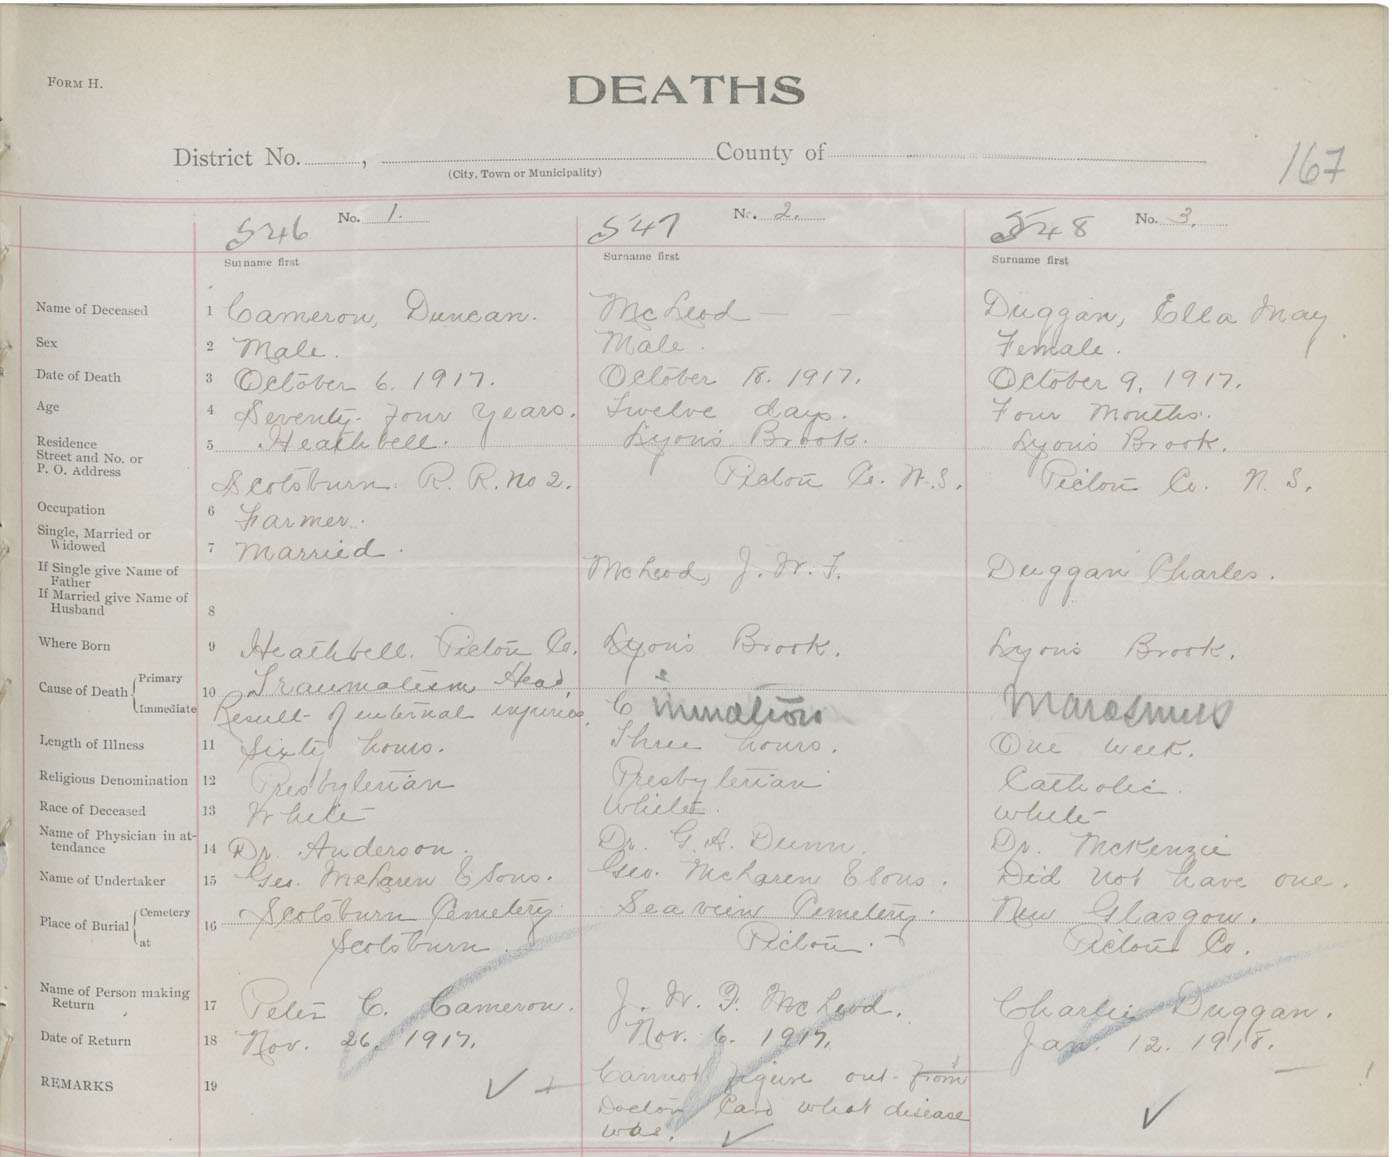 FORM H.
DEATHS
167
District No. , County of
(City, Town or Municipality)
546 No. 1. 547 No. 2. 548 No. 3.
Surname first Surname first Surname first
Name of Deceased 1 Cameron, Duncan. McLeod — — Duggan, Ella May
Sex 2 Male. Male. Female.
Date of Death 3 October 6. 1917. October 18. 1917. October 9, 1917.
Age 4 Seventy-four years. Twelve days. Four Months.
Residence 5 Heathbell. Lyons Brook. Lyons Brook.
Street and No. or
P. O. Address Scotsburn. R. R. No 2. Pictou Co. N.S. Pictou Co. N. S.
Occupation 6 Farmer.
Single, Married or
Widowed 7 Married.
If Single give Name of
Father McLeod, J. W. F. Duggan Charles.
If Married give Name of
Husband 8
Where Born 9 Heathbell. Pictou Co. Lyons Brook. Lyons Brook.
Cause of Death Primary 10 Traumatism Head,
Immediate Result of internal injuries. Marasmus
Length of Illness 11 Sixty hours. Three hours. One week.
Religious Denomination 12 Presbyterian Presbyterian Catholic.
Race of Deceased 13 White White. White
Name of Physician in at-
tendance 14 Dr. Anderson. Dr. G. A. Dunn. Dr. McKenzie
Name of Undertaker 15 Geo. McLaren & Sons. Geo. McLaren & Sons. Did not have one.
Place of Burial Cemetery 16 Scotsburn Cemetery Seaview Cemetery. New Glasgow.
at Scotsburn. Pictou. Pictou Co.
Name of Person making
Return 17 Peter C. Cameron. J. W. F. McLeod. Charlie Duggan.
Date of Return 18 Nov. 26. 1917. Nov. 6. 1917. Jan. 12. 1918.
REMARKS 19 Cannot figure out from
Doctors Card what disease
was.